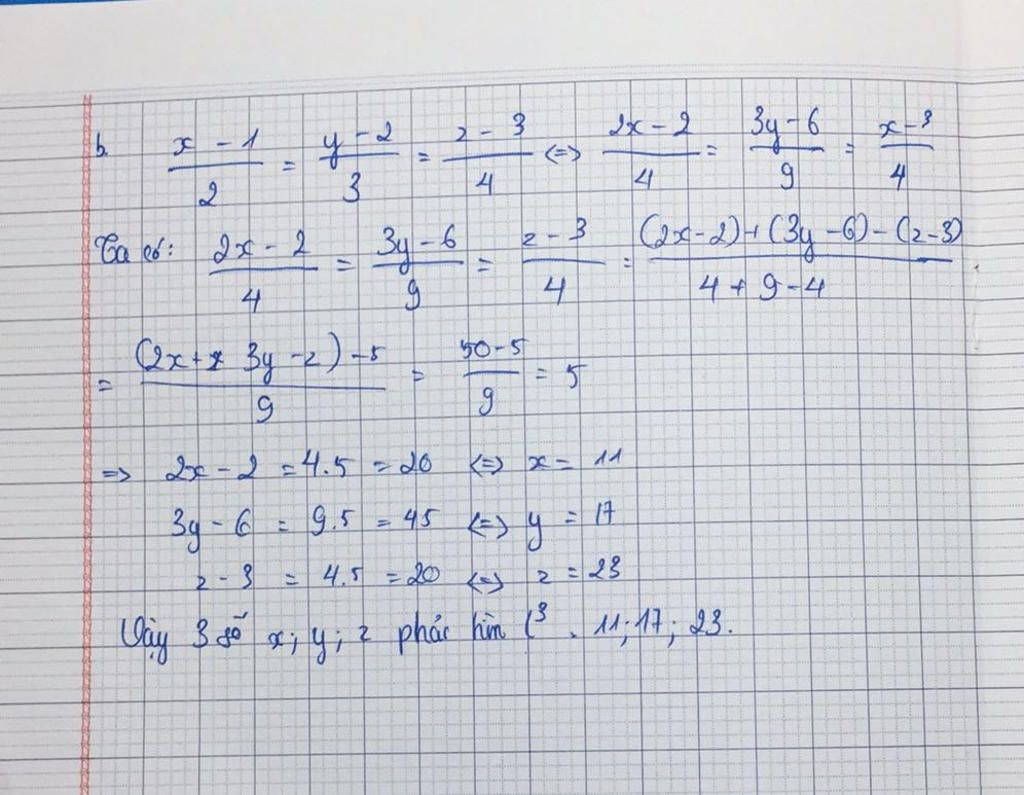 b. (x - 1)/2 = (y - 2)/3 = (z - 3)/4 <=> (2x - 2)/4 = (3y - 6)/9 = (x - 3)/4
Ta có: (2x - 2)/4 = (3y - 6)/9 = (z - 3)/4 = ((2x - 2) + (3y - 6) - (z - 3))/(4 + 9 - 4)
= ((2x + 3y - z) - 5)/9 = (50 - 5)/9 = 5
=> 2x - 2 = 4.5 = 20 <=> x = 11
3y - 6 = 9.5 = 45 <=> y = 17
z - 3 = 4.5 = 20 <=> z = 23
Vậy 3 số x; y; z phải 11; 17; 23.